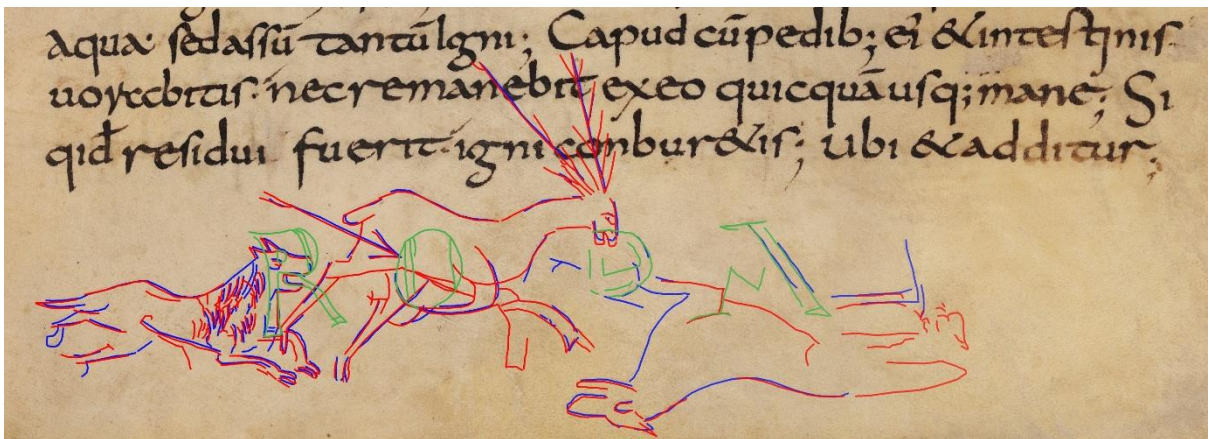 aqua. sed assū tantū igni; Capud cū pedib; ei & intestinis
uorabitis. nec remanebit ex eo quicquā usq; mane; Si
qid residui fuerit. igni conbur&is; Ubi & additur;
RODUN